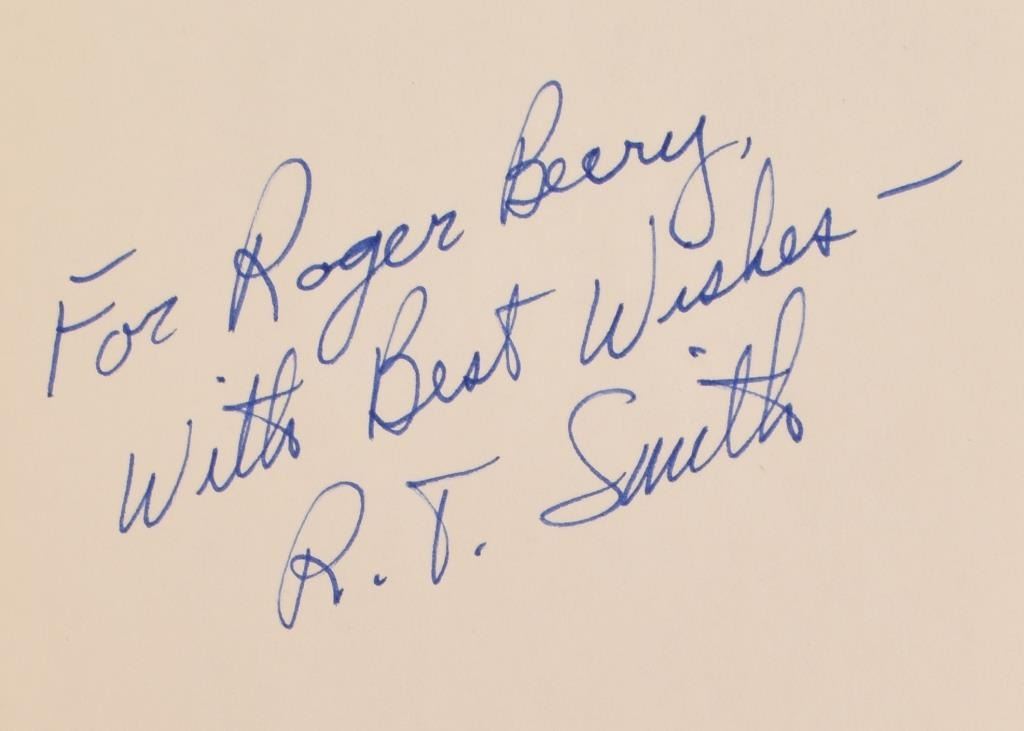 For Roger Beery,
With Best Wishes —
R. T. Smith